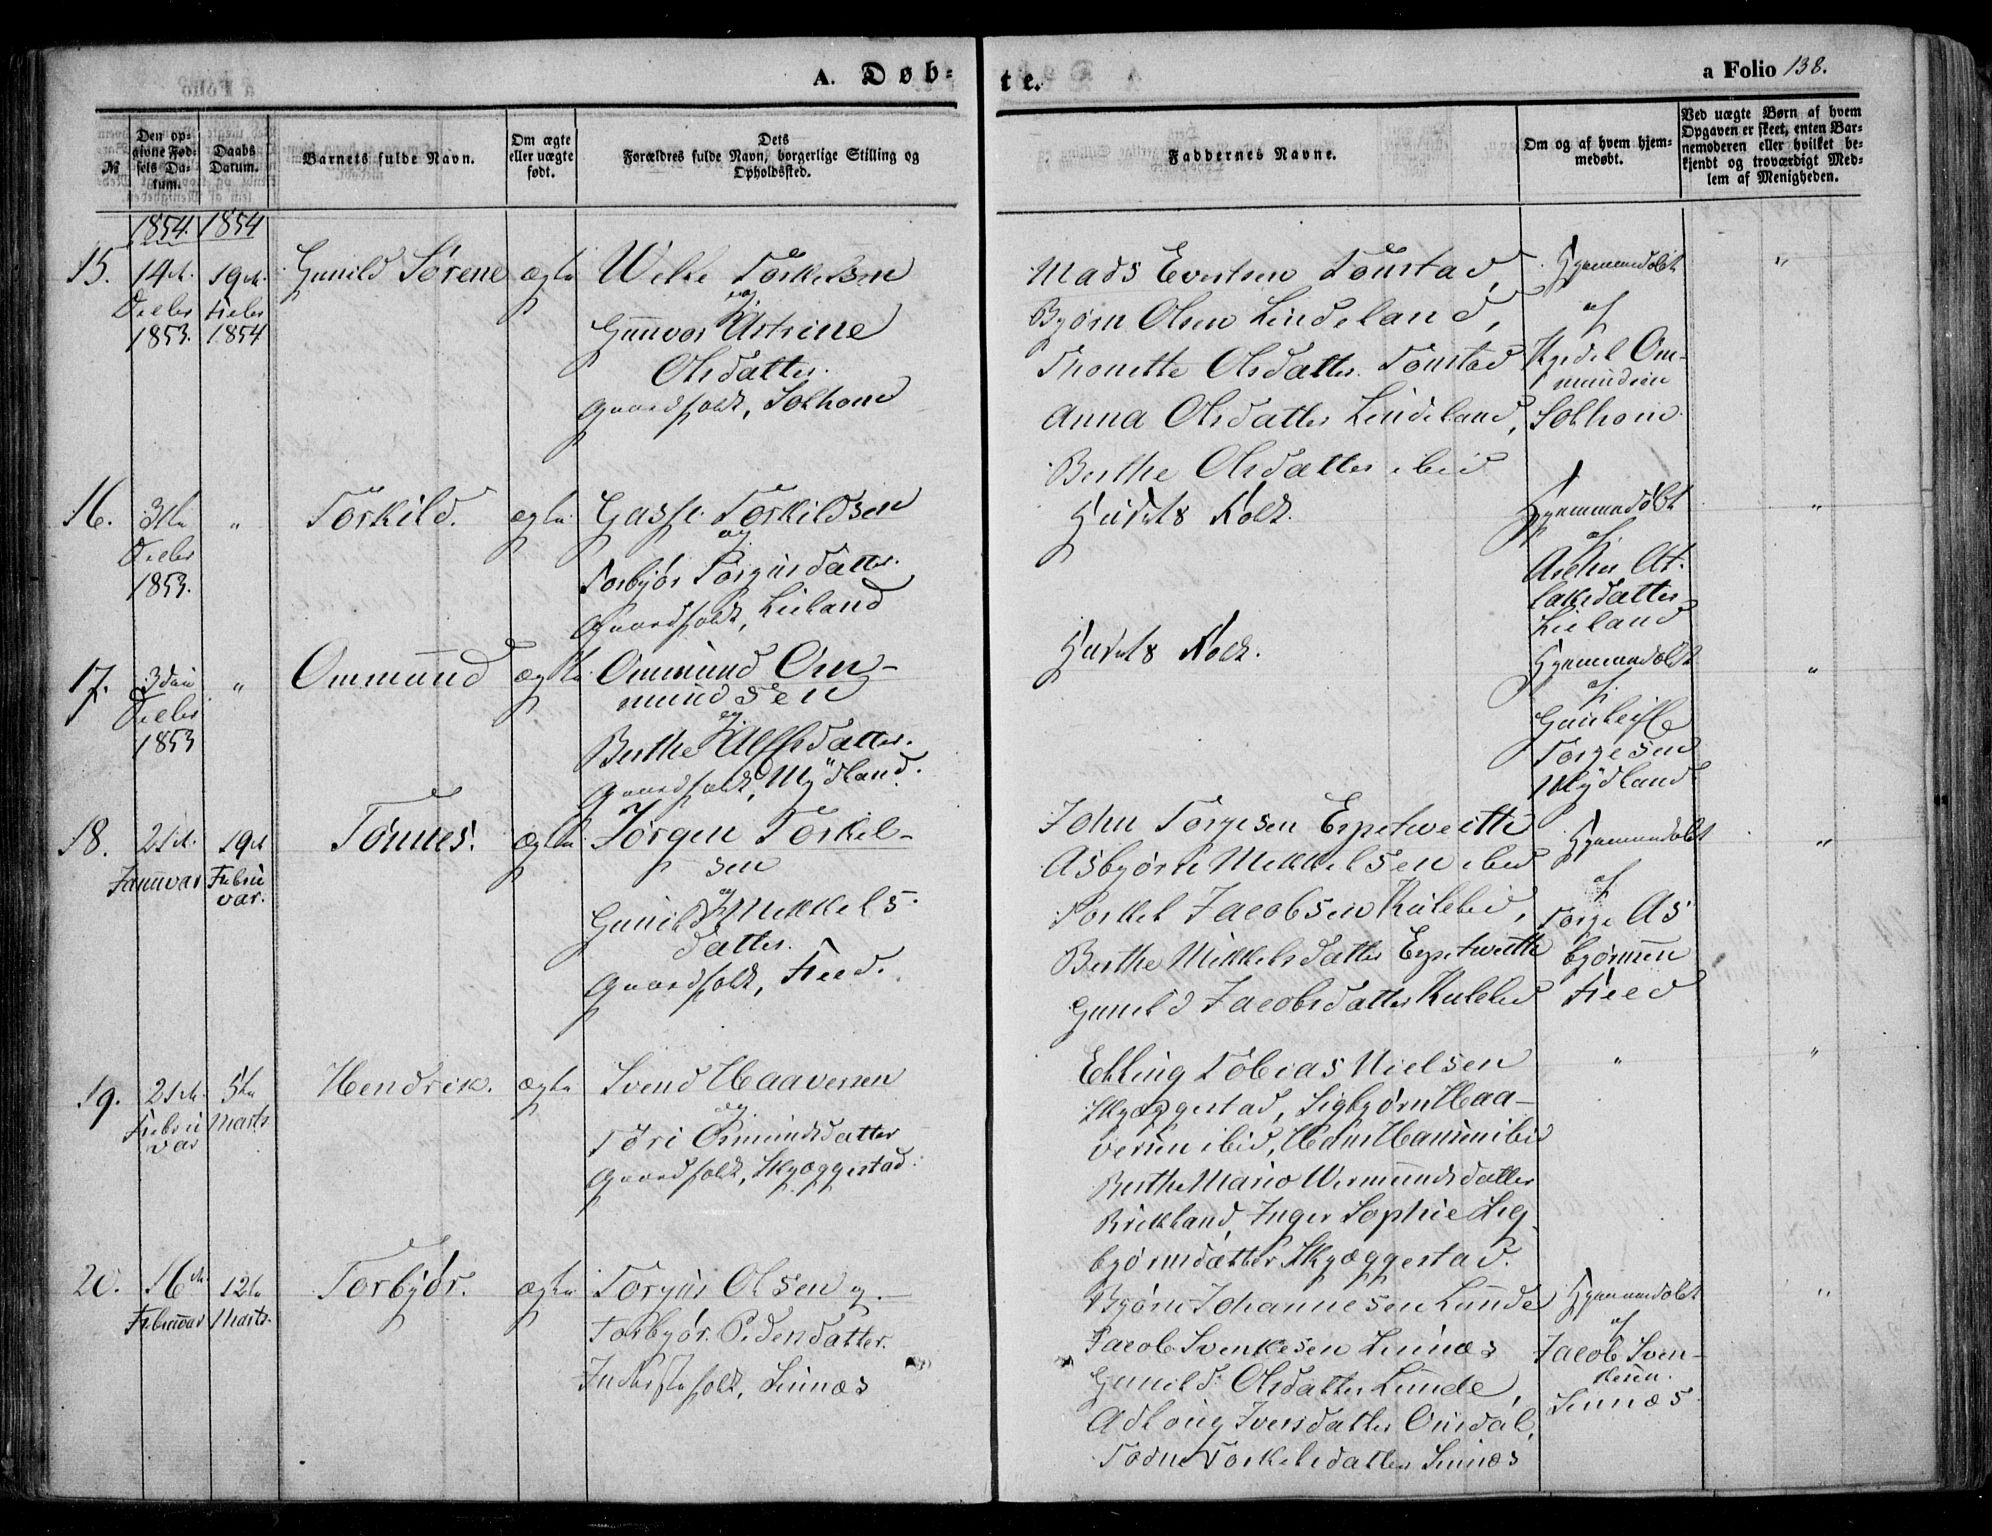 A. Døb-
te.
a Folio 138.
№
Den op-
givne Fød-
sels Da-
tum.
Daabs
Datum.
Barnets fulde Navn.
Om ægte
eller uægte
født.
Dets
Forældres fulde Navn, borgerlige Stilling og
Opholdssted.
Faddernes Navne.
Om og af hvem hjem-
medøbt.
Ved uægte Børn af hvem
Opgaven er skeet, enten Bar-
nemoderen eller hvilket be-
kjendt og troværdigt Med-
lem af Menigheden.
1854. 1854
15.
14de
Decbr
1853.
19de
Febr
1854
Gunild Sørene
ægte
Torkelsen
og
Gunvor Astrine
Olsdatter.
Gaardfolk, Solhom
Mads Evertsen Tonstad,
Bjørn Olsen Lindeland,
Thonette Olsdatter Tonstad
Anna Olsdatter Lindeland,
Berthe Olsdatter ibid
Hjemmedøbt
af
Kjedel Om-
mundsen
Solhom
"
16.
31te
Decbr
1853.
"
Torkild.
ægte
Torkildsen
og
Torbjør Torgusdatter.
Gaardfolk, Lieland
Huusets Folk.
Hjemmedøbt
af
At-
laksdatter
Lieland
"
17.
Decbr
1853
"
Ommund
ægte
Ommund Om-
mundsen
og
Berthe Alfsdatter.
Gaardfolk, Mydland.
Huusets Folk.
Hjemmedøbt
af
Gunleif
Torgesen
Mydland
"
18.
21de
Januar
19de
Febru
var.
Tønnes.
ægte
Jørgen Torkel-
sen
og
Gunild Mikkels-
datter.
Gaardfolk, Feed.
John Torgesen Espetweith
Asbjørn Mikkelsen ibid
Torkel Jacobsen Kulebid,
Berthe Mikkelsdatter Espetweith
Gunild Jacobsdatter Kulebid
Hjemmedøbt
af
Torge As
bjørnsen
Feed
"
19.
21de
Febru
var
5te
Marts
Hendrik.
ægte
Svend Haaversen
og
Tøri Osmundsdatter
Gaardfolk, Skjæggestad.
Elling Tobias Nielsen
Skjæggestad, Sigbjørn Haa-
versen ibid, Hans Hansen ibid
Berthe Marie Wermundsdatter
Birkland, Inger Sophie Sig-
bjørnsdatter Skjæggestad.
"
"
20.
16de
Februar
12te
Marts.
Torbjør.
ægte
Torgus Olsen og
Torbjør Pedersdatter.
Inderstefolk, Sinnæs
Bjørn Johannesen Lunde
Jacob Svenkesen Sinnæs
Gunild Olsdatter Lunde,
Adloug Iversdatter Omdal,
Todne Torkelsdatter Sinnæs
Hjemmedøbt
af
Jacob Sven-
kesen
Sinnæs.
"